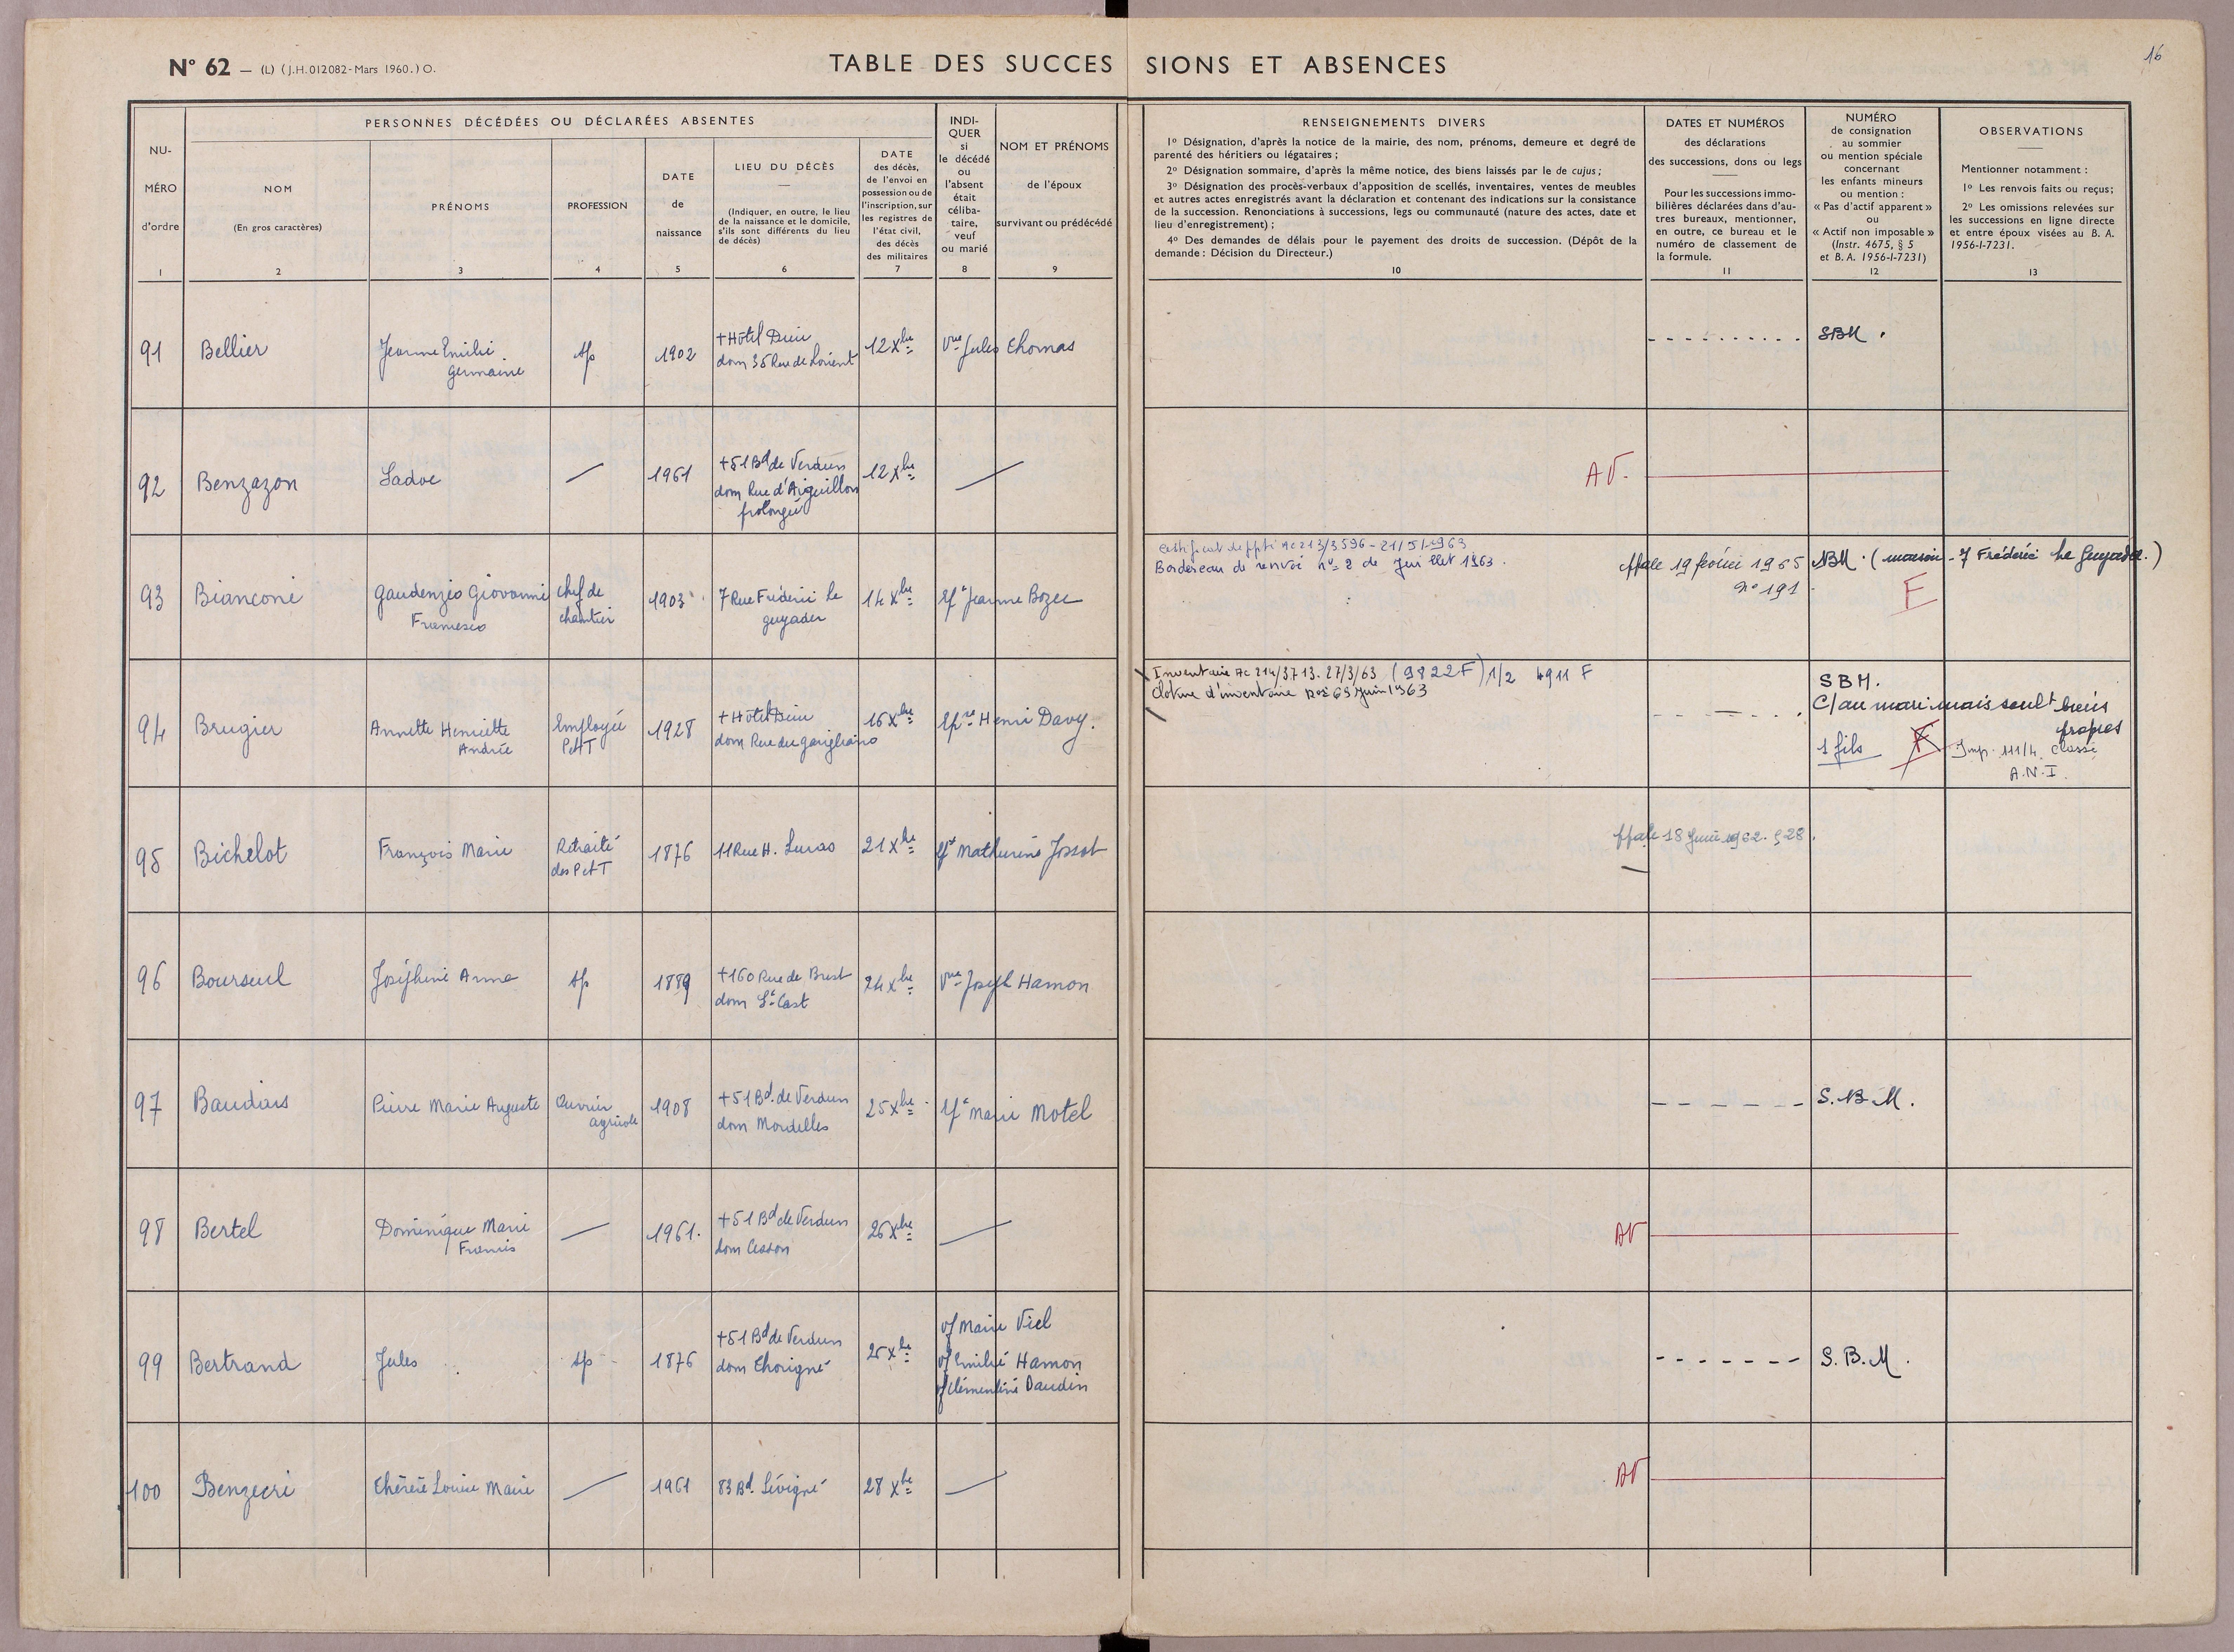 N° 62 — (L) (J.H.012082-Mars 1960.) O.
TABLE DES SUCCESSIONS ET ABSENCES
16
NU-
MÉRO
d'ordre
1
PERSONNES DÉCÉDÉES OU DÉCLARÉES ABSENTES
NOM
(En gros caractères)
2
PRÉNOMS
3
PROFESSION
4
DATE
de
naissance
5
LIEU DU DÉCÈS
(Indiquer, en outre, le lieu
de la naissance et le domicile,
s'ils sont différents du lieu
de décès)
6
DATE
des décès,
de l'envoi en
possession ou de
l'inscription, sur
les registres de
l'état civil,
des décès
des militaires
7
INDI-
QUER
si
le décédé
ou
l'absent
était
céliba-
taire,
veuf
ou marié
8
NOM ET PRÉNOMS
de l'époux
survivant ou prédécédé
9
RENSEIGNEMENTS DIVERS
1° Désignation, d'après la notice de la mairie, des nom, prénoms, demeure et degré de
parenté des héritiers ou légataires ;
2° Désignation sommaire, d'après la même notice, des biens laissés par le de cujus ;
3° Désignation des procès-verbaux d'apposition de scellés, inventaires, ventes de meubles
et autres actes enregistrés avant la déclaration et contenant des indications sur la consistance
de la succession. Renonciations à successions, legs ou communauté (nature des actes, date et
lieu d'enregistrement) ;
4° Des demandes de délais pour le payement des droits de succession. (Dépôt de la
demande : Décision du Directeur.)
10
DATES ET NUMÉROS
des déclarations
des successions, dons ou legs
Pour les successions immo-
bilières déclarées dans d'au-
tres bureaux, mentionner,
en outre, ce bureau et le
numéro de classement de
la formule.
11
NUMÉRO
de consignation
au sommier
ou mention spéciale
concernant
les enfants mineurs
ou mention :
« Pas d'actif apparent »
ou
« Actif non imposable »
(Instr. 4675, § 5
et B. A. 1956-I-7231)
12
OBSERVATIONS
Mentionner notamment :
1° Les renvois faits ou reçus;
2° Les omissions relevées sur
les successions en ligne directe
et entre époux visées au B. A.
1956-I-7231.
13
91 Bellier Jeanne Emilie Germaine sp 1902 + Hôtel Dieu dom 35 Rue de Lorient 12 Xbre Vve Jules Thomas SBM .
92 Benzazon Sadoc — 1961 + 51 Bd de Verdun dom Rue d'Aiguillon prolongée 12 Xbre — AV.
93 Bianconi Gaudenzio Giovanni Francesco chef de chantier 1903 7 Rue Frédéric Le Guyader 14 Xbre Jeanne Bozec
Bordereau de renvoi n° 2 de Juillet 1963.
19 février 1965 n° 191
NBM . (maison - 7 Frédéric Le Guyader.)
F
94 Brugier Annette Henriette Andrée Employée PetT 1928 + Hôtel Dieu dom Rue du Garigliano 16 Xbre Henri Davy.
Inventaire Ac 214/3713. 27/3/63 (9822 F) 1/2 4911 F
Cloture d'inventaire
SBM.
C/ au mari mais seult biens propres
1 fils F Imp. 111/4 classé
A.N.I.
95 Bichelot François Marie Retraité des PetT 1876 11 Rue H. Lucas 21 Xbre Mathurine Jossot
18 Juin 1962.
96 Bourseul Joséphine Anna sp 1889 + 160 Rue de Brest dom St Cast 24 Xbre Vve Joseph Hamon
97 Baudais Pierre Marie Auguste Ouvrier agricole 1908 + 51 Bd. de Verdun dom Mordelles 25 Xbre Marie Motel S.B.M.
98 Bertel Dominique Marie Francis — 1961. + 51 Bd de Verdun dom Cesson 26 Xbre — AV
99 Bertrand Jules sp 1876 + 51 Bd de Verdun dom Thorigné 25 Xbre vf Marie Viel
vf Emilie Hamon
vf Clémentine Daudin
S.B.M.
100 Benzecri Thérèse Louise Marie — 1961 83 Bd. Sévigné 28 Xbre — AV